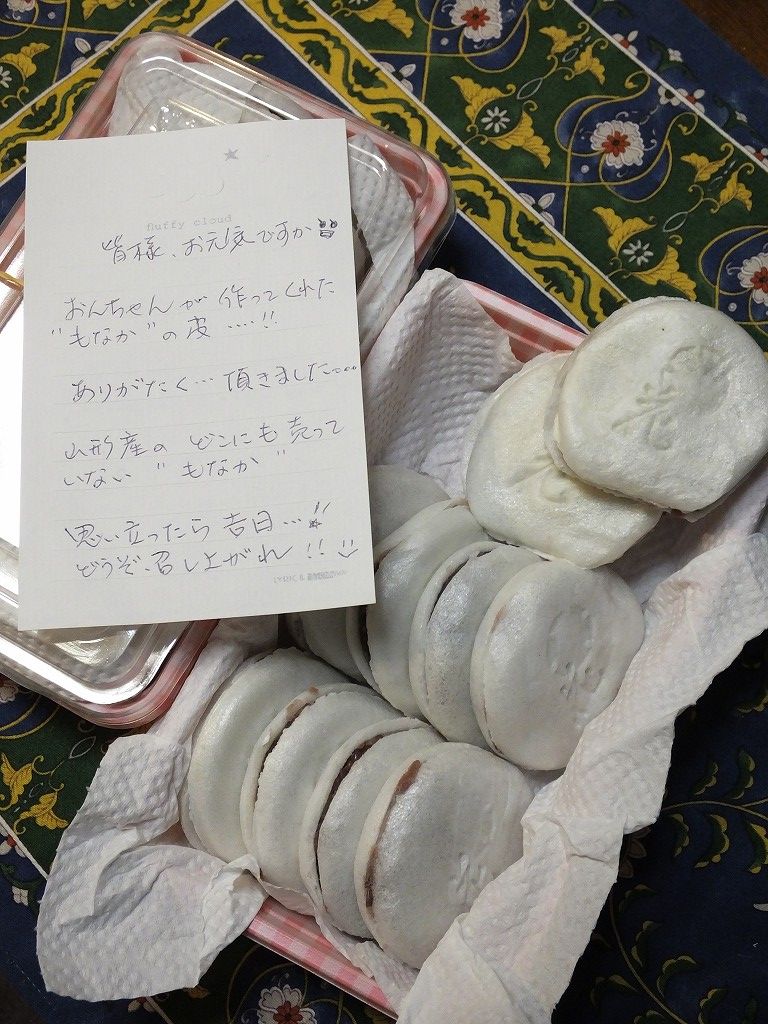 fluffy cloud
皆様、お元気ですか
おんちゃんが 作ってくれた
"もなか"の皮 ....!!
ありがたく… 頂きました…
山形産の どこにも売って
いない "もなか"
思い立ったら 吉日…!
どうぞ、召し上がれ !!
LYRIC &